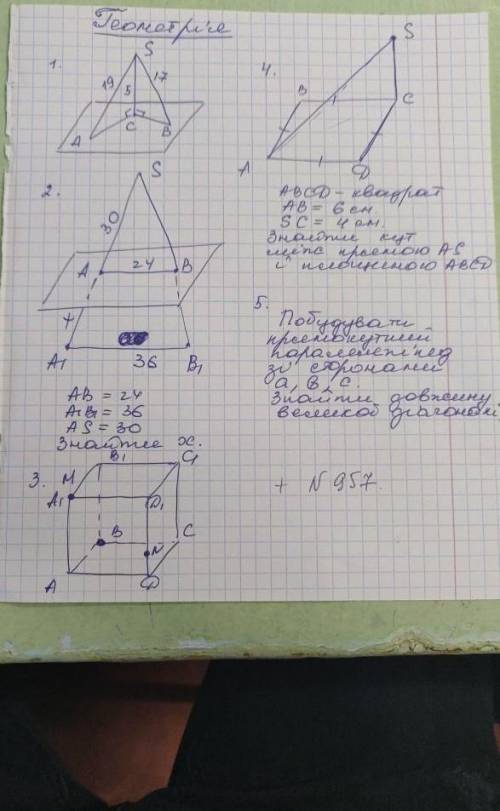 Геометрія
1.
S
19
5
17
A
C
B
2.
S
30
A
24
B
x
A1
36
B1
AB = 24
A1B1 = 36
AS = 30
Знайти x.
3.
M
B1
C1
A1
D1
B
C
N
A
D
4.
S
B
C
A
D
ABCD - квадрат
AB = 6 см
SC = 4 см
Знайти кут
між прямою AS
і площиною ABCD
5.
Побудувати
прямокутний
паралелепіпед
зі сторонами
a, b, c.
Знайти довжину
великої діагоналі
+ N 957.